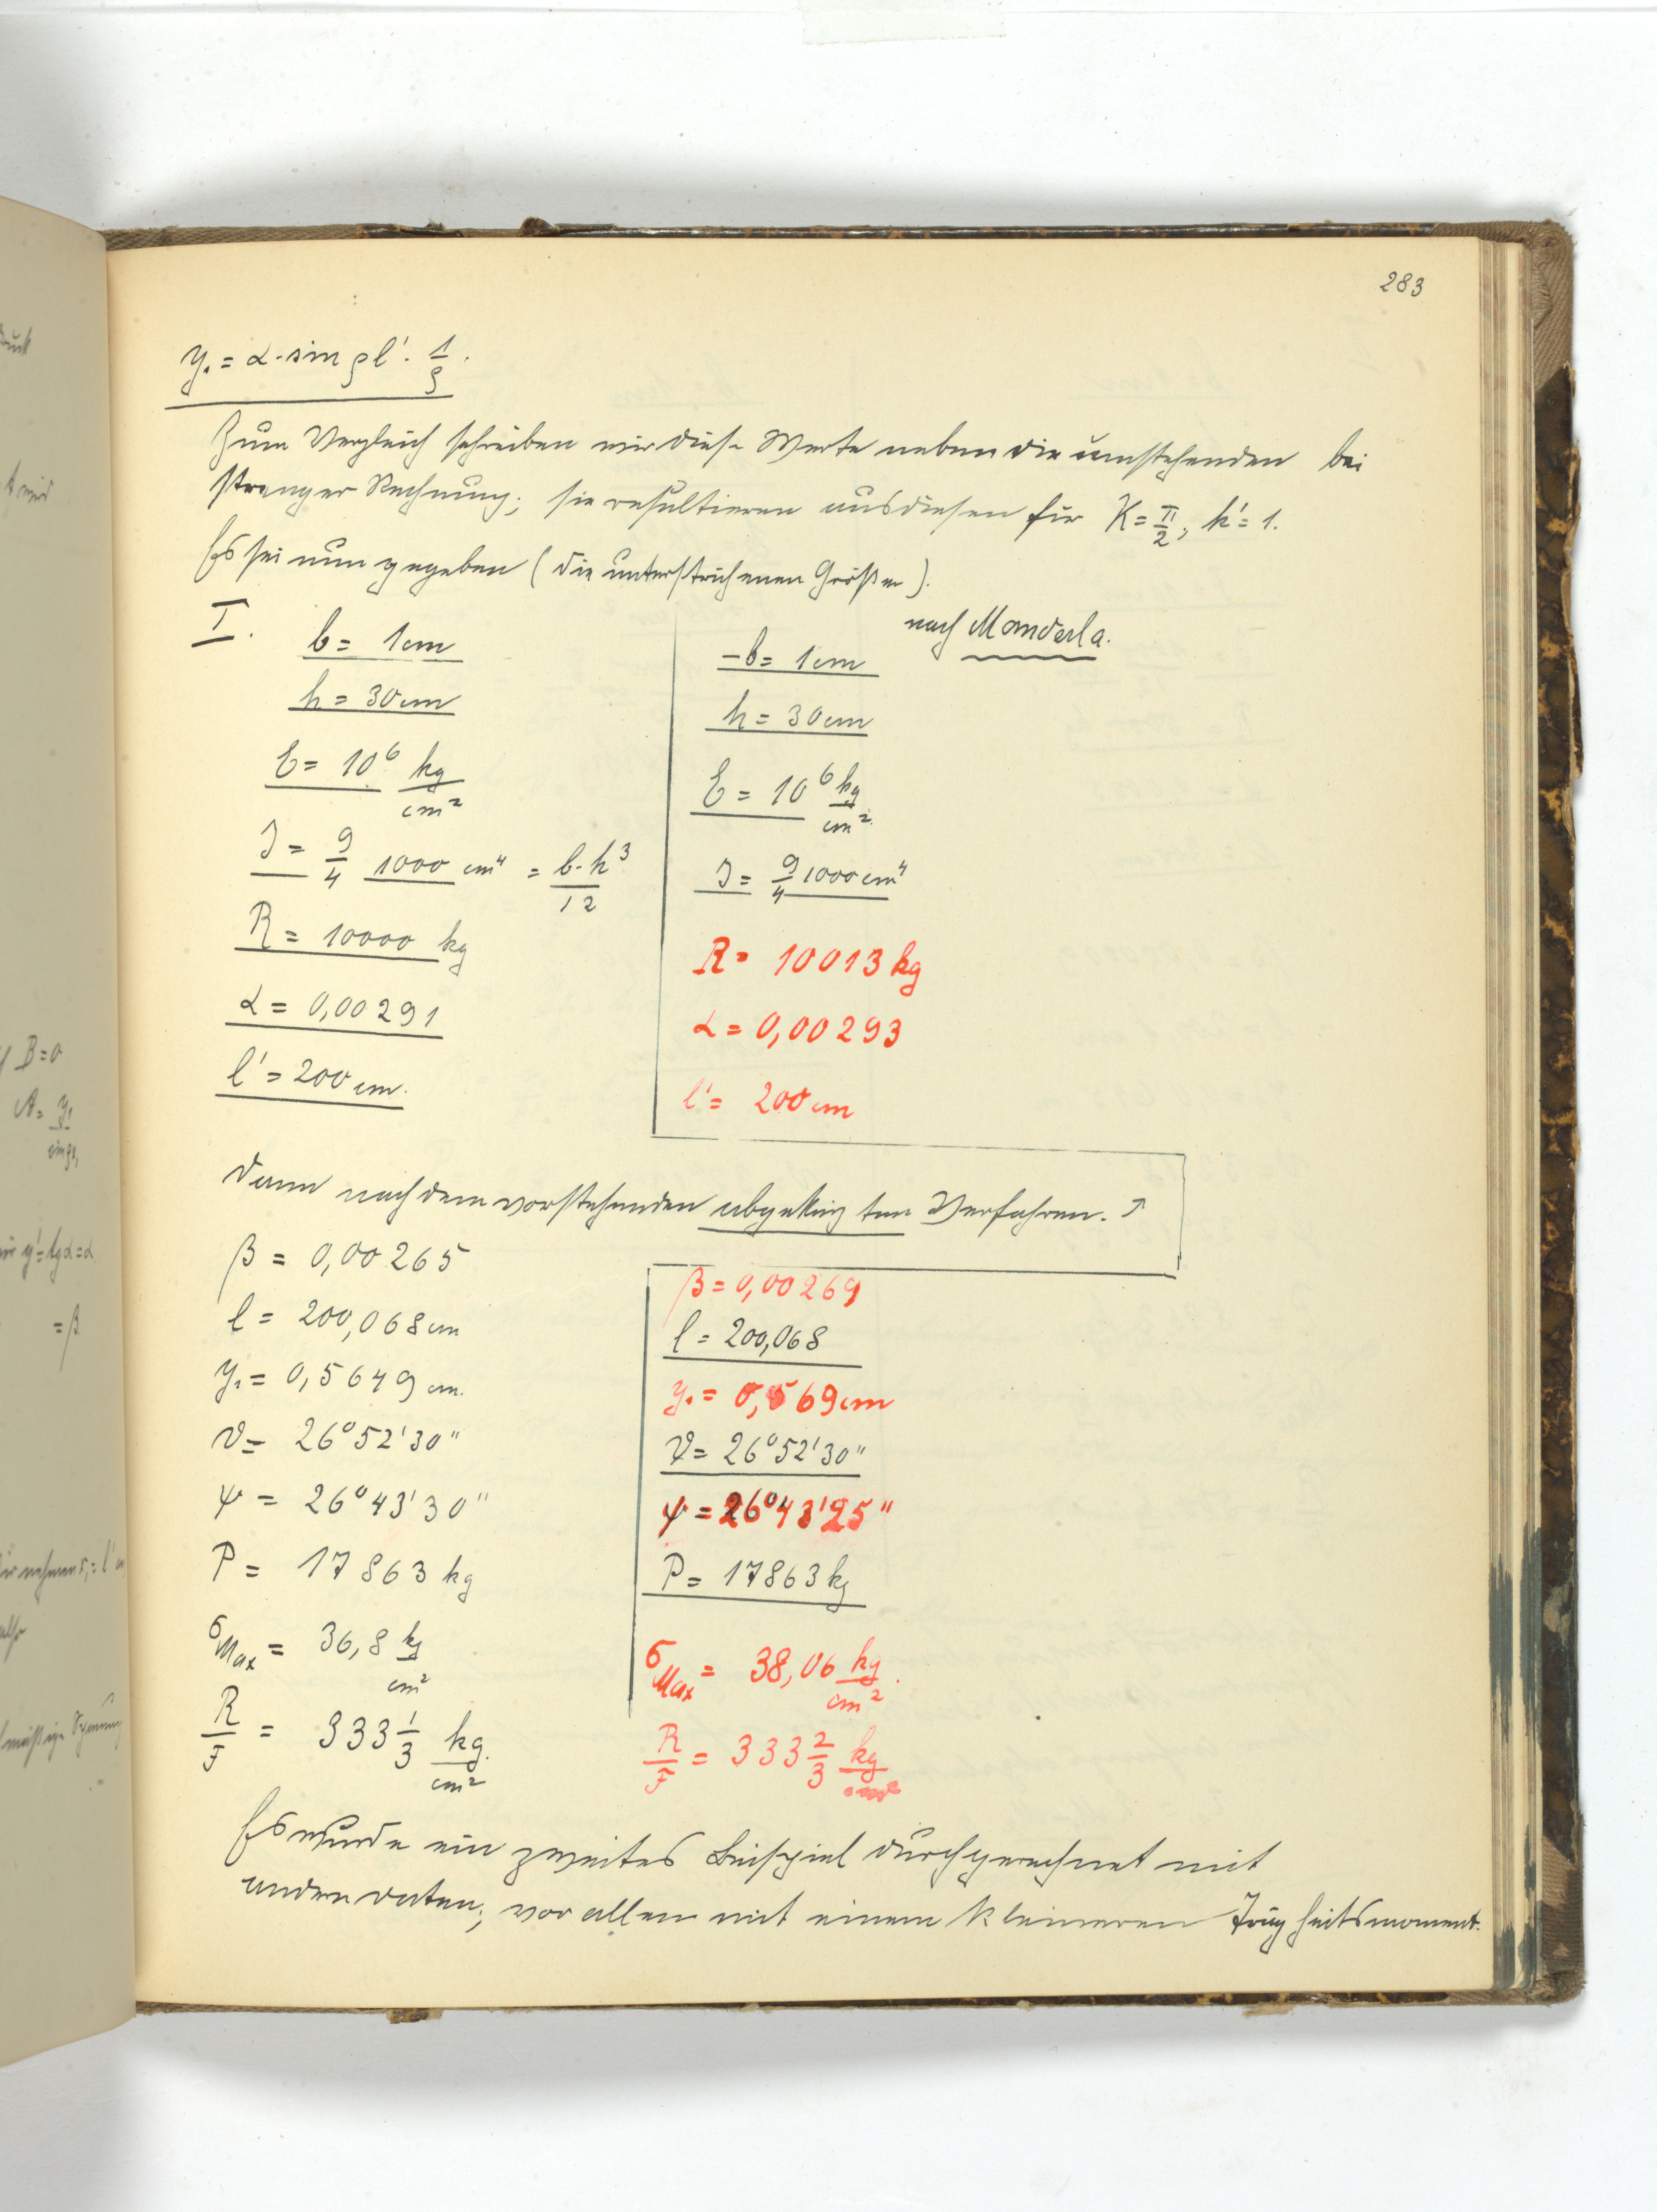 283
y₁ = α · sin ρl' · 1/ρ.
Zum Vergleich schreiben wir diese Werte neben die umstehenden bei
strenger Rechnung; sie resultieren aus diesen für K = π/2, k' = 1.
Es sei nun gegeben (die unterstrichenen Größen).
I.
b = 1 cm
h = 30 cm
E = 10⁶ kg/cm²
J = 9/4 1000 cm⁴ = b·h³/12
R = 10000 kg
α = 0,00291
l' = 200 cm.
nach Manderla.
b = 1 cm
h = 30 cm
E = 10⁶ kg/cm²
J = 9/4 1000 cm⁴
R = 10013 kg
α = 0,00293
l' = 200 cm
Dann nach dem vorstehenden abgekürzten Verfahren.
β = 0,00265
l = 200,068 cm
y₁ = 0,5649 cm.
ϑ = 26°52'30"
ψ = 26°43'30"
P = 17863 kg
σMax = 36,8 kg/cm²
R/F = 333 1/3 kg/cm²
β = 0,00269
l = 200,068
y₁ = 0,569 cm
ϑ = 26°52'30"
ψ = 26°43'25"
P = 17863 kg
σMax = 38,06 kg/cm².
R/F = 333 2/3 kg/cm²
Es wurde ein zweites Beispiel durchgerechnet mit
andern Daten; vor allem mit einem kleineren Trägheitsmoment.
B = 0
A = y₁
= β